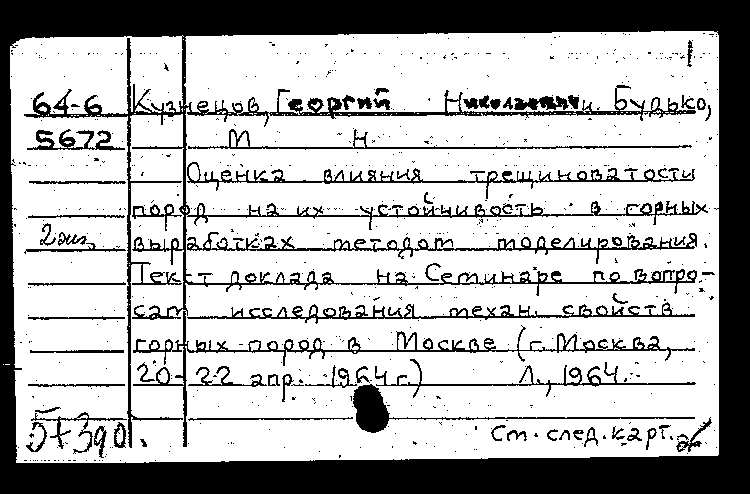 64-6 Кузнецов, Георгий Николаевич и Будько,
5672 М Н
Оценка влияния трещиноватости
пород на их устойчивость в горных
2 экз. выработках методом моделирования.
Текст доклада на Семинаре по вопро-
сам исследования механ. свойств
горных пород в Москве (г. Москва,
20-22 апр. 1964 г.) Л., 1964.
57390. Ст. след. карт.